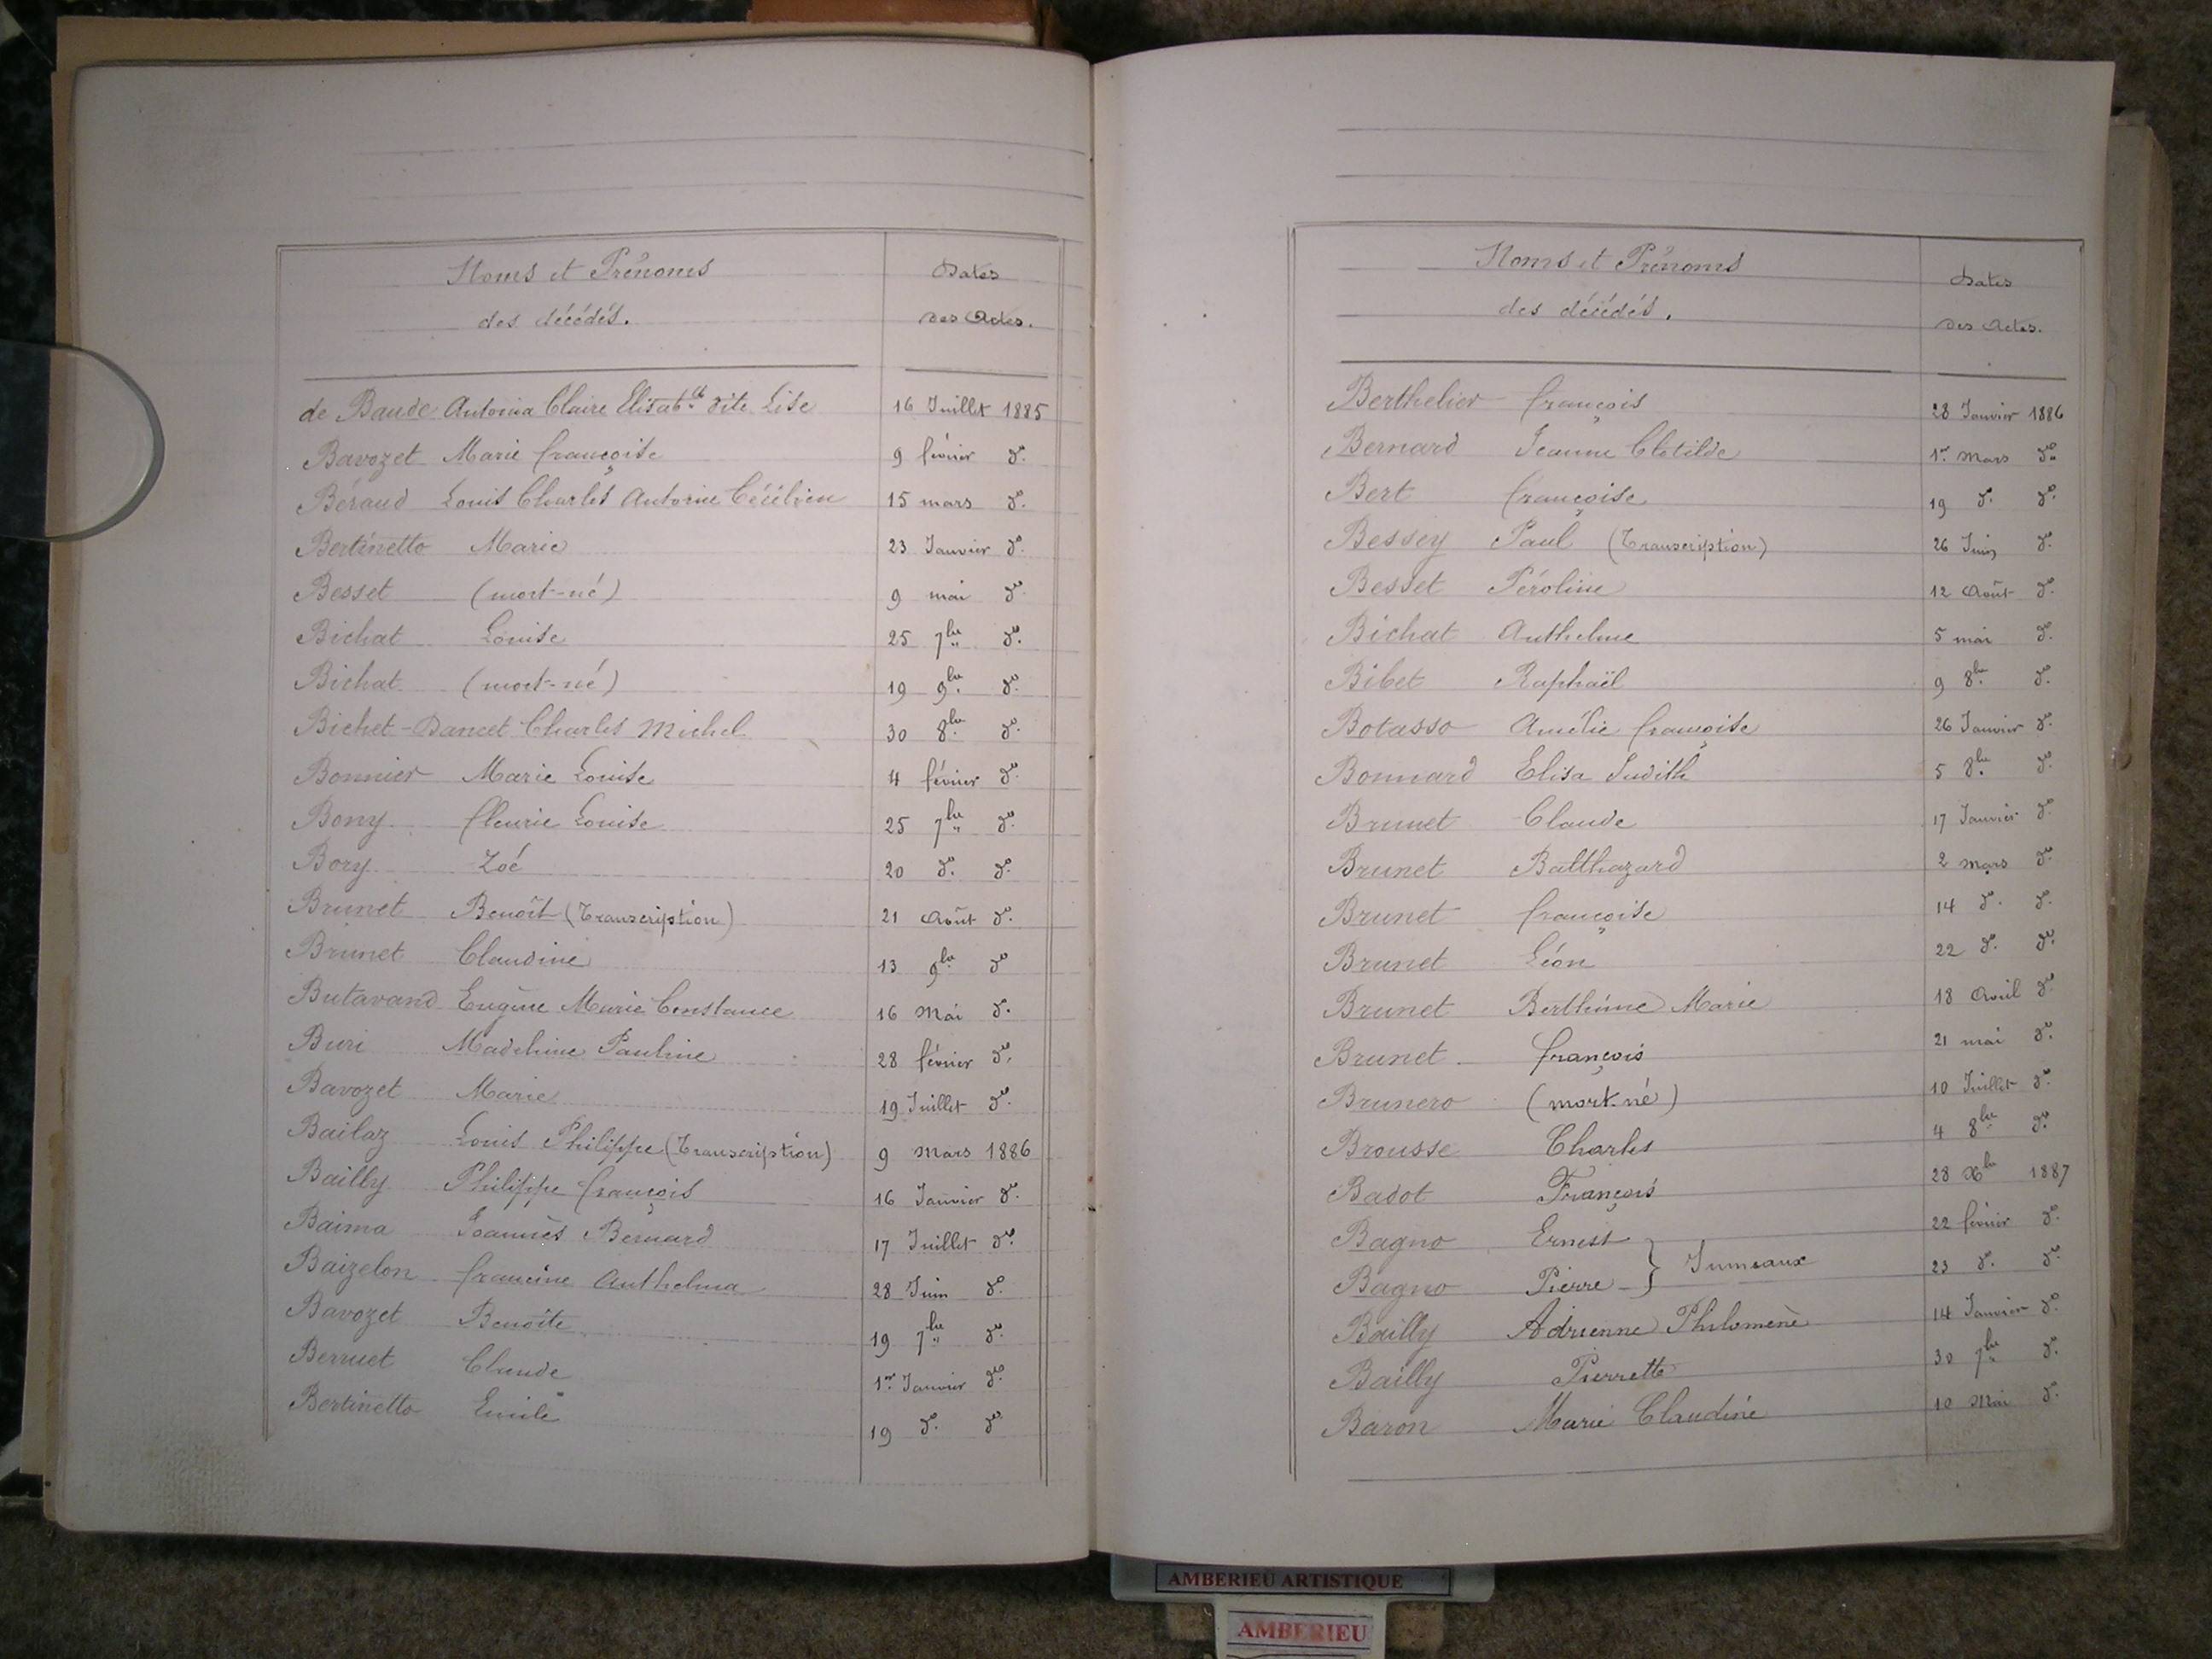 Noms et Prénoms
des décédés.
Dates
des Actes.
de Baude Antonia Claire Elisabth dite Lise 16 Juillet 1885
Bavozet Marie françoise 9 février do.
Béraud Louis Charles Antoine Cécilien 15 mars do.
Bertinetto Marie 23 Janvier do.
Besset (mort-né) 9 mai do.
Bichat Louise 25 7bre do.
Bichat (mort-né) 19 9bre do.
Bichet-Dancet Charles Michel 30 8bre do.
Bonnier Marie Louise 4 février do.
Bony fleurie Louise 25 7bre do.
Bory Zoé 20 do. do.
Brunet Benoît (Transcription) 21 Août do.
Brunet Claudine 13 9bre do
Butavand Eugène Marie Constance 16 Mai do.
Buri Madeleine Pauline 28 février do.
Bavozet Marie 19 Juillet do.
Bailaz Louis Philippe (Transcription) 9 Mars 1886
Bailly Philippe françois 16 Janvier do.
Baima Joannès Bernard 17 Juillet do.
Baizelon francine Anthelma 28 Juin do.
Bavozet Benoîte 19 7bre do.
Berruet Claude 1er Janvier do.
Bertinetto Emile 19 do. do
Noms et Prénoms
des décédés.
Dates
des Actes.
Berthelier françois 28 Janvier 1886
Bernard Jeanne Clotilde 1er Mars do.
Bert françoise 19 do. do.
Bessey Paul (Transcription) 26 Juin do.
Besset Péroline 12 Août do.
Bichat Anthelme 5 mai do.
Bibet Raphaël 9 8bre do.
Botasso Amélie françoise 26 Janvier do.
Bonnard Elisa Judith 5 8bre do.
Brunet Claude 17 Janvier do
Brunet Balthazard 2 Mars do.
Brunet françoise 14 do. do.
Brunet Léon 22 do. do.
Brunet Berthine Marie 18 Avril do
Brunet françois 21 mai do.
Brunero (mort-né) 10 Juillet do.
Brousse Charles 4 8bre do.
Badot François 28 Xbre 1887
Bagno Ernest 22 février do.
Jumeaux
Bagno Pierre 23 do. do.
Bailly Adrienne Philomène 14 Janvier do
Bailly Pierrette 30 7bre do.
Baron Marie Claudine 10 Mai do.
AMBERIEU ARTISTIQUE
AMBERIEU